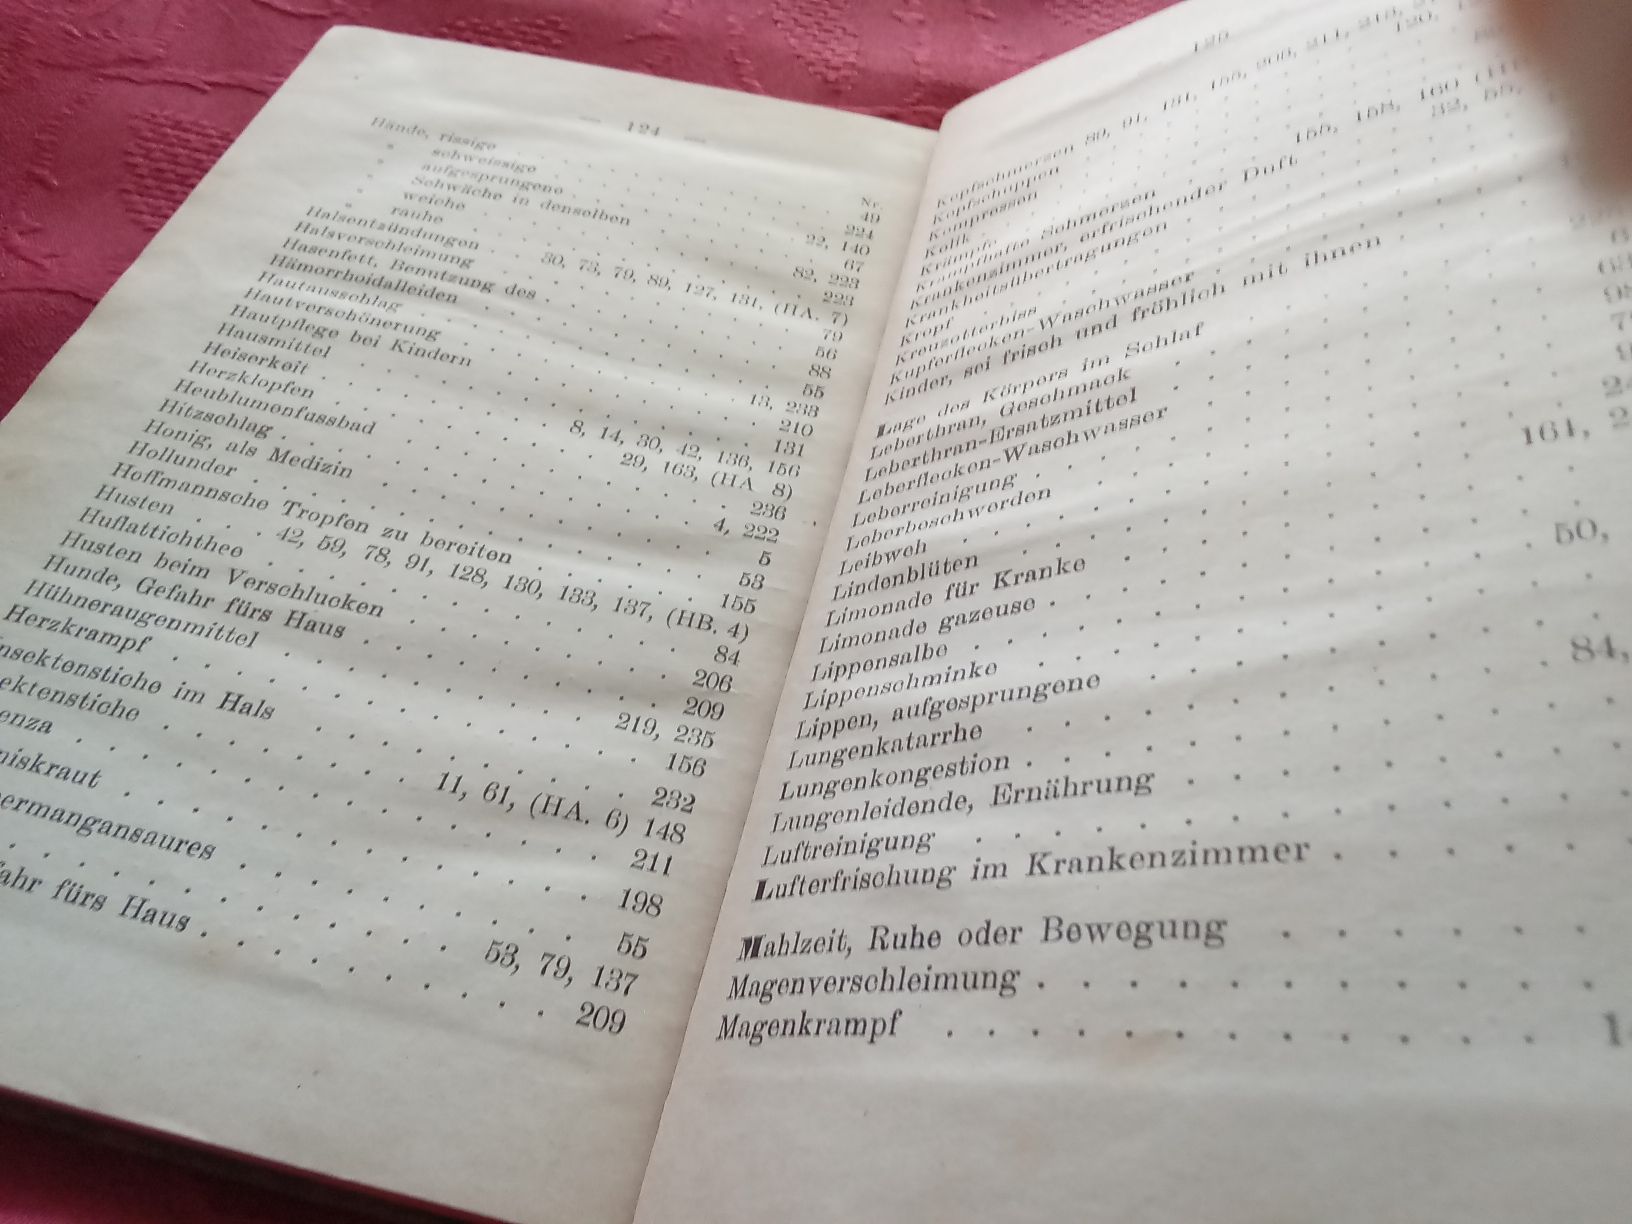 — 124 —
Nr.
Hände, rissige . . . 49
" schweissige . . . 224
" aufgesprungene . . . 22, 140
" Schwäche in denselben . . . 67
" weiche . . . 82, 223
" rauhe . . . 223
Halsentzündungen . . 30, 73, 79, 89, 127, 131, (HA. 7)
Halsverschleimung . . . 79
Hasenfett, Benutzung des . . . 56
Hämorrhoidalleiden . . . 88
Hautausschlag . . . 55
Hautverschönerung . . . 13, 233
Hautpflege bei Kindern . . . 210
Hausmittel . . . 131
Heiserkeit . . . 8, 14, 30, 42, 136, 156
Herzklopfen . . . 29, 163, (HA 8)
Heublumenfussbad . . . 236
Hitzschlag . . . 4, 222
Honig, als Medizin . . . 5
Hollunder . . . 53
Hoffmannsche Tropfen zu bereiten . . . 155
Husten . . . 42, 59, 78, 91, 128, 130, 133, 137, (HB. 4)
Huflattichthee . . . 84
Husten beim Verschlucken . . . 206
Hunde, Gefahr fürs Haus . . . 209
Hühneraugenmittel . . . 219, 235
Herzkrampf . . . 156
nsektenstiche im Hals . . . 232
ektenstiche . . . 11, 61, (HA. 6) 148
enza . . . 211
niskraut . . . 198
permangansaures . . . 55
. . . 53, 79, 137
ahr fürs Haus . . . 209
125
Kopfschmerzen 89, 91, 131, 155, 208, 211, 218,
Kopfschuppen . . . 120,
Kompressen . . .
Kolik . . . 155, 158, 160
Krämpfe . . . 32, 55,
Krampfhafte Schmerzen . . .
Krankenzimmer, erfrischender Duft . . .
Krankheitsübertragungen . . .
Kropf . . .
Kreuzotterbiss . . .
Kupferflecken-Waschwasser . . .
Kinder, sei frisch und fröhlich mit ihnen . . .
Lage des Körpers im Schlaf . . .
Leberthran, Geschmack . . .
Leberthran-Ersatzmittel . . .
Leberflecken-Waschwasser . . .
Leberreinigung . . .
Leberbeschwerden . . . 161,
Leibweh . . .
Lindenblüten . . .
Limonade für Kranke . . . 50,
Limonade gazeuse . . .
Lippensalbe . . .
Lippenschminke . . .
Lippen, aufgesprungene . . . 84,
Lungenkatarrhe . . .
Lungenkongestion . . .
Lungenleidende, Ernährung . . .
Luftreinigung . . .
Lufterfrischung im Krankenzimmer . . .
Mahlzeit, Ruhe oder Bewegung . . .
Magenverschleimung . . .
Magenkrampf . . .